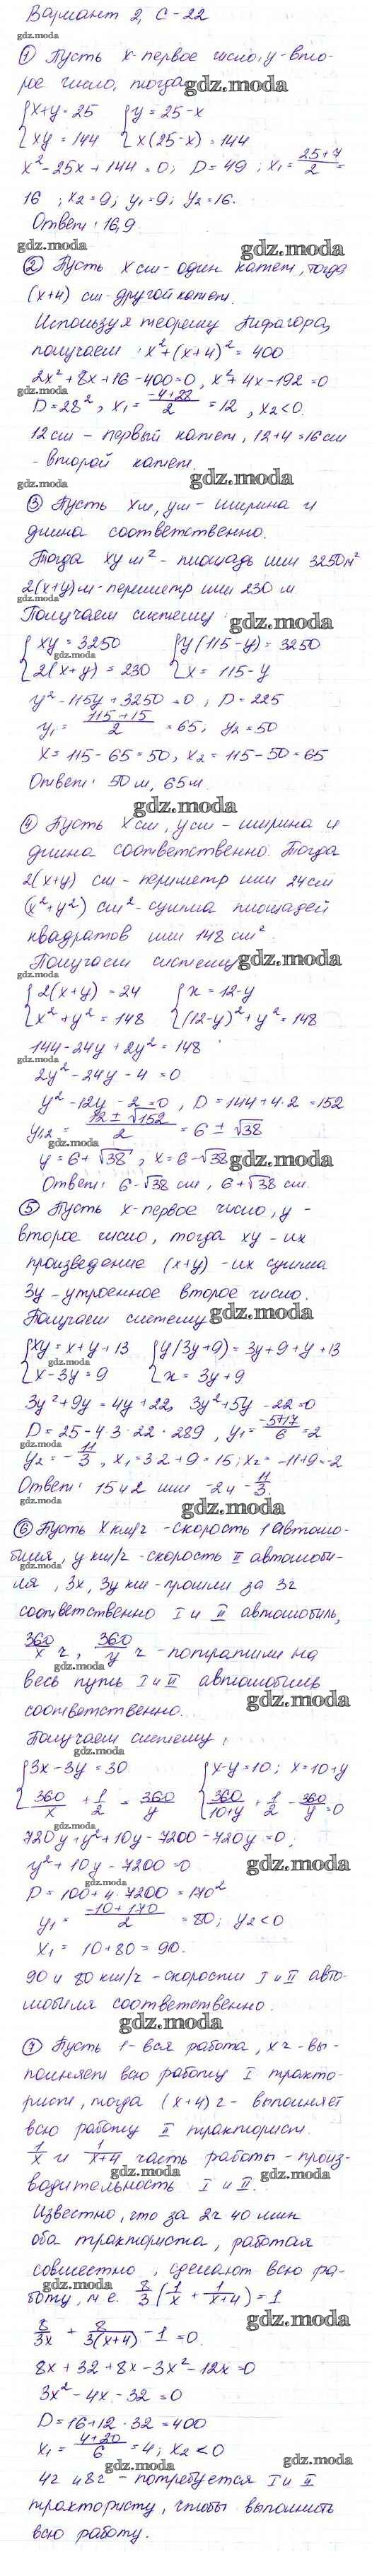 Вариант 2, С-22
gdz.moda
① Пусть x-первое число, y-вто-
рое число, тогда gdz.moda
{x+y=25 {y=25-x
{xy=144 {x(25-x)=144
x²-25x+144=0; D=49; x₁=(25+7)/2=
16; x₂=9; y₁=9; y₂=16.
Ответ: 16,9
gdz.moda gdz.moda
② Пусть x см-один катет, тогда
(x+4) см-другой катет.
Используя теорему Пифагора,
получаем: x²+(x+4)²=400
2x²+8x+16-400=0, x²+4x-192=0
gdz.moda
D=28², x₁=(-4+28)/2=12, x₂<0.
12 см - первый катет, 12+4=16 см
- второй катет.
gdz.moda gdz.moda
③ Пусть x м, y м - ширина и
длина соответственно.
Тогда xy м² - площадь или 3250 м²
2(x+y) м-периметр или 230 м
gdz.moda
Получаем систему: gdz.moda
{xy=3250 {y(115-y)=3250
gdz.moda
{2(x+y)=230 {x=115-y
y²-115y+3250=0; D=225
y₁=(115+15)/2=65; y₂=50
x=115-65=50, x₂=115-50=65
Ответ: 50 м, 65 м.
gdz.moda
④ Пусть x см, y см - ширина и
длина соответственно. Тогда
2(x+y) см - периметр или 24 см
gdz.moda
(x²+y²) см²-сумма площадей
квадратов или 148 см².
Получаем систему gdz.moda
gdz.moda
{2(x+y)=24 {x=12-y
{x²+y²=148 {(12-y)²+y²=148
144-24y+2y²=148
gdz.moda
2y²-24y-4=0
y²-12y-2=0, D=144+4·2=152
y₁,₂=(12±√152)/2=6±√38
gdz.moda
y=6+√38, x=6-√38 gdz.moda
Ответ: 6-√38 см, 6+√38 см
⑤ Пусть x-первое число, y-
второе число, тогда xy - их
произведение (x+y) -их сумма
3y-утроенное второе число.
Получаем систему gdz.moda
{xy=x+y+13 {y(3y+9)=3y+9+y+13
gdz.moda
{x-3y=9 {x=3y+9
3y²+9y=4y+22, 3y²+5y-22=0
D=25-4·3·22=289, y₁=(-5+17)/6=2
gdz.moda
y₂=-11/3, x₁=3·2+9=15; x₂=-11+9=-2
Ответ: 15 и 2 или -2 и -11/3.
gdz.moda
⑥ Пусть x км/ч -скорость I автомо-
биля, y км/ч -скорость II автомоби-
gdz.moda
ля, 3x, 3y км-прошли за 3ч
соответственно I и II автомобиль,
360/x ч, 360/y ч -потратили на
gdz.moda
весь путь I и II автомобиль
соответственно. gdz.moda
Получаем систему:
gdz.moda
{3x-3y=30 {x-y=10; x=10+y
{360/x+1/2=360/y {360/(10+y)+1/2-360/y=0
720y+y²+10y-7200-720y=0;
y²+10y-7200=0 gdz.moda
gdz.moda
D=100+4·7200=170²
y₁=(-10+170)/2=80; y₂<0
x₁=10+80=90.
90 и 80 км/ч-скорости I и II авто-
мобиля соответственно.
gdz.moda
⑦ Пусть 1-вся работа, x ч-вы-
полняет всю работу I тракто-
рист, тогда (x+4) ч - выполняет
всю работу II тракторист.
1/x и 1/(x+4) часть работы-произ-
gdz.moda gdz.moda
водительность I и II.
Известно, что за 2ч 40 мин
оба тракториста, работая
совместно, сделают всю ра-
gdz.moda
боту, т.е. 8/3(1/x+1/(x+4))=1
gdz.moda
8/3x+8/3(x+4)-1=0.
8x+32+8x-3x²-12x=0
3x²-4x-32=0
D=16+12·32=400
x₁=(4+20)/6=4; x₂<0
gdz.moda gdz.moda
4ч и 8ч - потребуется I и II
трактористу, чтобы выполнить
всю работу. gdz.moda